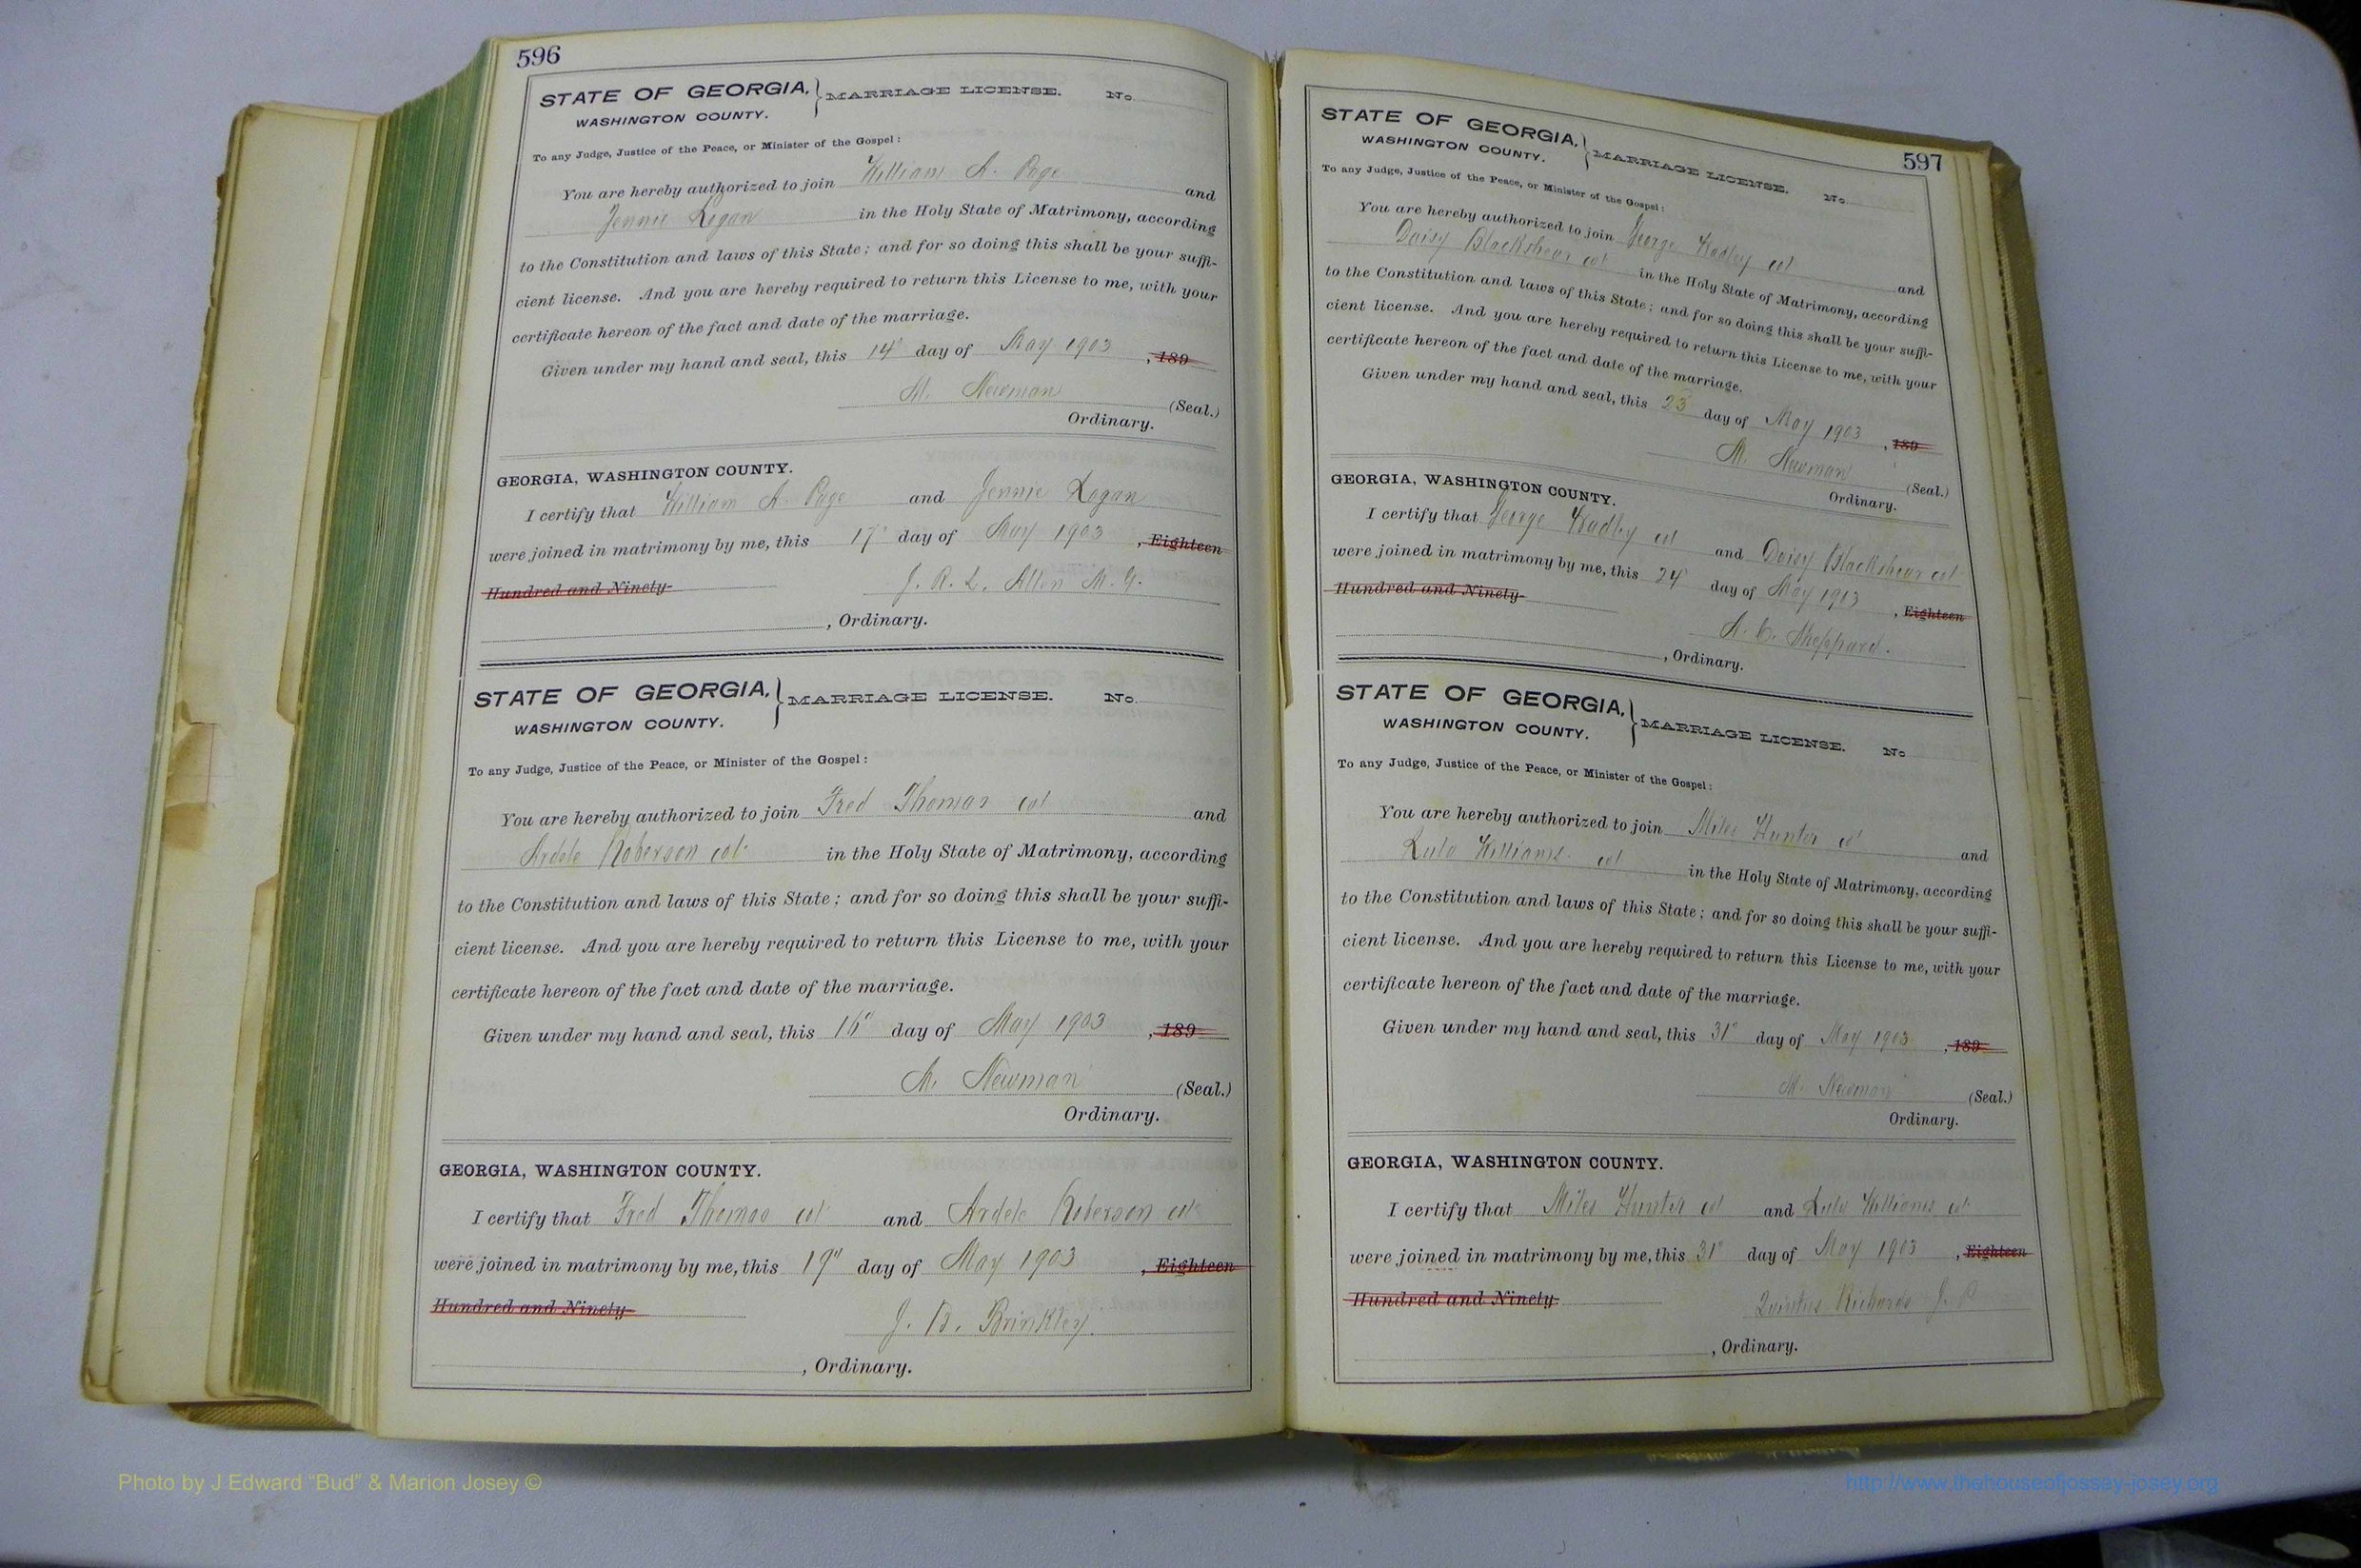 596
STATE OF GEORGIA, } MARRIAGE LICENSE. No.
WASHINGTON COUNTY.
To any Judge, Justice of the Peace, or Minister of the Gospel:
You are hereby authorized to join William A. Page and
Jennie Logan in the Holy State of Matrimony, according
to the Constitution and laws of this State; and for so doing this shall be your suffi-
cient license. And you are hereby required to return this License to me, with your
certificate hereon of the fact and date of the marriage.
Given under my hand and seal, this 14" day of May 1903, 189
M. Newman (Seal.)
Ordinary.
GEORGIA, WASHINGTON COUNTY.
I certify that William A. Page and Jennie Logan
were joined in matrimony by me, this 17" day of May 1903, Eighteen
Hundred and Ninety
J. R. L. Allen M. G.
, Ordinary.
STATE OF GEORGIA, } MARRIAGE LICENSE. No.
WASHINGTON COUNTY.
To any Judge, Justice of the Peace, or Minister of the Gospel:
You are hereby authorized to join Fred Thomas col and
Ardele Roberson col in the Holy State of Matrimony, according
to the Constitution and laws of this State; and for so doing this shall be your suffi-
cient license. And you are hereby required to return this License to me, with your
certificate hereon of the fact and date of the marriage.
Given under my hand and seal, this 16" day of May 1903, 189
M. Newman (Seal.)
Ordinary.
GEORGIA, WASHINGTON COUNTY.
I certify that Fred Thomas col and Ardele Roberson col
were joined in matrimony by me, this 19" day of May 1903, Eighteen
Hundred and Ninety
J. B. Brinkley.
, Ordinary.
597
STATE OF GEORGIA, } MARRIAGE LICENSE. No.
WASHINGTON COUNTY.
To any Judge, Justice of the Peace, or Minister of the Gospel:
You are hereby authorized to join George col and
Daisy Blackshear col in the Holy State of Matrimony, according
to the Constitution and laws of this State; and for so doing this shall be your suffi-
cient license. And you are hereby required to return this License to me, with your
certificate hereon of the fact and date of the marriage.
Given under my hand and seal, this 23 day of May 1903, 189
M. Newman (Seal.)
Ordinary.
GEORGIA, WASHINGTON COUNTY.
I certify that George col and Daisy Blackshear col
were joined in matrimony by me, this 24" day of May 1903, Eighteen
Hundred and Ninety
A. C. Sheppard.
, Ordinary.
STATE OF GEORGIA, } MARRIAGE LICENSE. No
WASHINGTON COUNTY.
To any Judge, Justice of the Peace, or Minister of the Gospel:
You are hereby authorized to join Miles Hunter col and
Lula Williams col in the Holy State of Matrimony, according
to the Constitution and laws of this State; and for so doing this shall be your suffi-
cient license. And you are hereby required to return this License to me, with your
certificate hereon of the fact and date of the marriage.
Given under my hand and seal, this 31" day of May 1903, 189
M. Newman (Seal.)
Ordinary.
GEORGIA, WASHINGTON COUNTY.
I certify that Miles Hunter col and Lula Williams col
were joined in matrimony by me, this 31" day of May 1903, Eighteen
Hundred and Ninety
Quintus Richards J. P.
, Ordinary.
Photo by J Edward "Bud" & Marion Josey ©
http://www.thehouseofjossey-josey.org